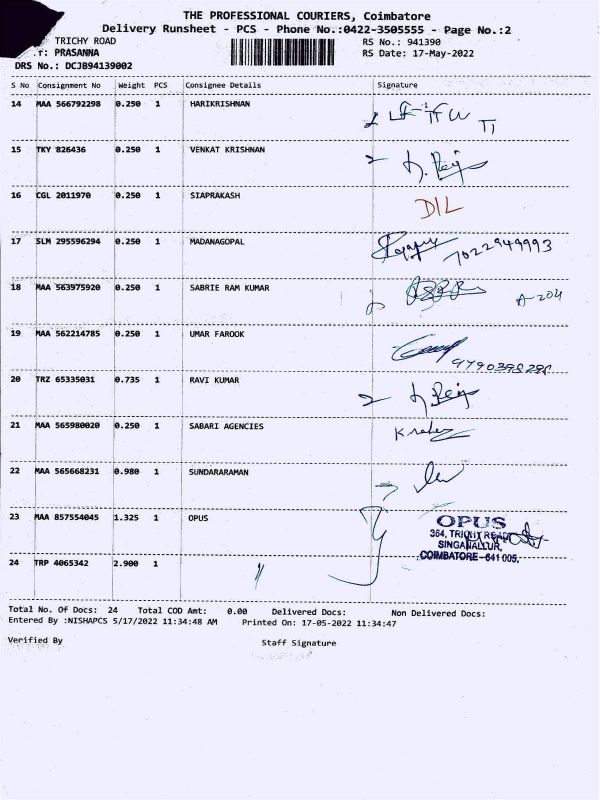 THE PROFESSIONAL COURIERS, Coimbatore
Delivery Runsheet - PCS - Phone No.:0422-3505555 - Page No.:2
TRICHY ROAD RS No.: 941390
.f: PRASANNA RS Date: 17-May-2022
DRS No.: DCJB94139002
S No Consignment No Weight PCS Consignee Details Signature
14 MAA 566792298 0.250 1 HARIKRISHNAN
15 TKY 826436 0.250 1 VENKAT KRISHNAN
16 CGL 2011970 0.250 1 SIAPRAKASH DIL
17 SLM 295596294 0.250 1 MADANAGOPAL 7022949993
18 MAA 563975920 0.250 1 SABRIE RAM KUMAR A-204
19 MAA 562214785 0.250 1 UMAR FAROOK
20 TRZ 65335031 0.735 1 RAVI KUMAR
21 MAA 565980020 0.250 1 SABARI AGENCIES
22 MAA 565668231 0.980 1 SUNDARARAMAN
23 MAA 857554045 1.325 1 OPUS OPUS
364, TRICHY ROAD
SINGANALLUR,
COIMBATORE-641 005.
24 TRP 4065342 2.900 1
Total No. Of Docs: 24 Total COD Amt: 0.00 Delivered Docs: Non Delivered Docs:
Entered By :NISHAPCS 5/17/2022 11:34:48 AM Printed On: 17-05-2022 11:34:47
Verified By Staff Signature